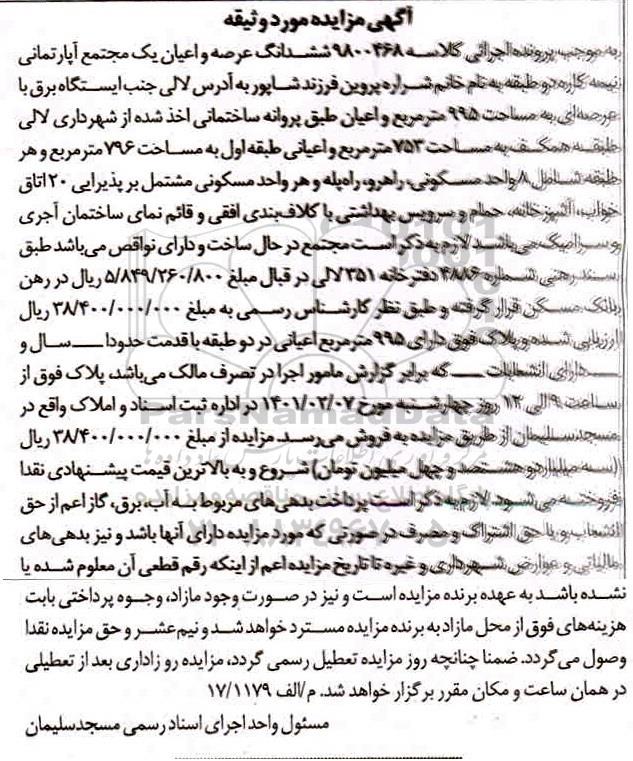 آگهی مزایده مورد وثیقه
به موجب پرونده اجرائی کلاسه ۹۸۰۰۴۶۸ ششدانگ عرصه و اعیان یک مجتمع آپارتمانی
نیمه کاره دو طبقه به نام خانم شراره پروین فرزند شاپور به آدرس لالی جنب ایستگاه برق با
عرصه‌ای به مساحت ۹۹۵ مترمربع و اعیان طبق پروانه ساختمانی اخذ شده از شهرداری لالی
طبقه همکف به مساحت ۷۵۳ مترمربع و اعیانی طبقه اول به مساحت ۷۹۶ مترمربع و هر
طبقه شامل ۸ واحد مسکونی، راهرو، راه‌پله و هر واحد مسکونی مشتمل بر پذیرایی ۲۰ اتاق
خواب، آشپزخانه، حمام و سرویس بهداشتی با کلاف‌بندی افقی و قائم نمای ساختمان آجری
و سرامیک می‌باشد لازم به ذکر است مجتمع در حال ساخت و دارای نواقص می‌باشد طبق
سند رهنی شماره ۴۸۸۶ دفترخانه ۳۵۱ لالی در قبال مبلغ ۵/۸۴۹/۲۶۰/۸۰۰ ریال در رهن
بانک مسکن قرار گرفته و طبق نظر کارشناس رسمی به مبلغ ۳۸/۴۰۰/۰۰۰/۰۰۰ ریال
ارزیابی شده و پلاک فوق دارای ۹۹۵ مترمربع اعیانی در دو طبقه با قدمت حدودا ـــ سال و
ـــ دارای انشعابات ـــ که برابر گزارش مامور اجرا در تصرف مالک می‌باشد، پلاک فوق از
ساعت ۹ الی ۱۲ روز چهارشنبه مورخ ۱۴۰۱/۰۲/۰۷ در اداره ثبت اسناد و املاک واقع در
مسجدسلیمان از طریق مزایده به فروش می‌رسد مزایده از مبلغ ۳۸/۴۰۰/۰۰۰/۰۰۰ ریال
(سه میلیارد و هشتصد و چهل میلیون تومان) شروع و به بالاترین قیمت پیشنهادی نقدا
فروخته می‌شود لازم به ذکر است پرداخت بدهی‌های مربوط به آب، برق، گاز اعم از حق
انشعاب و یا حق اشتراک و مصرف در صورتی که مورد مزایده دارای آنها باشد و نیز بدهی‌های
مالیاتی و عوارض شهرداری و غیره تا تاریخ مزایده اعم از اینکه رقم قطعی آن معلوم شده یا
نشده باشد به عهده برنده مزایده است و نیز در صورت وجود مازاد، وجوه پرداختی بابت
هزینه‌های فوق از محل مازاد به برنده مزایده مسترد خواهد شد و نیم عشر و حق مزایده نقدا
وصول می‌گردد. ضمنا چنانچه روز مزایده تعطیل رسمی گردد، مزایده روز اداری بعد از تعطیلی
در همان ساعت و مکان مقرر برگزار خواهد شد. م/الف ۱۷/۱۱۷۹
مسئول واحد اجرای اسناد رسمی مسجدسلیمان